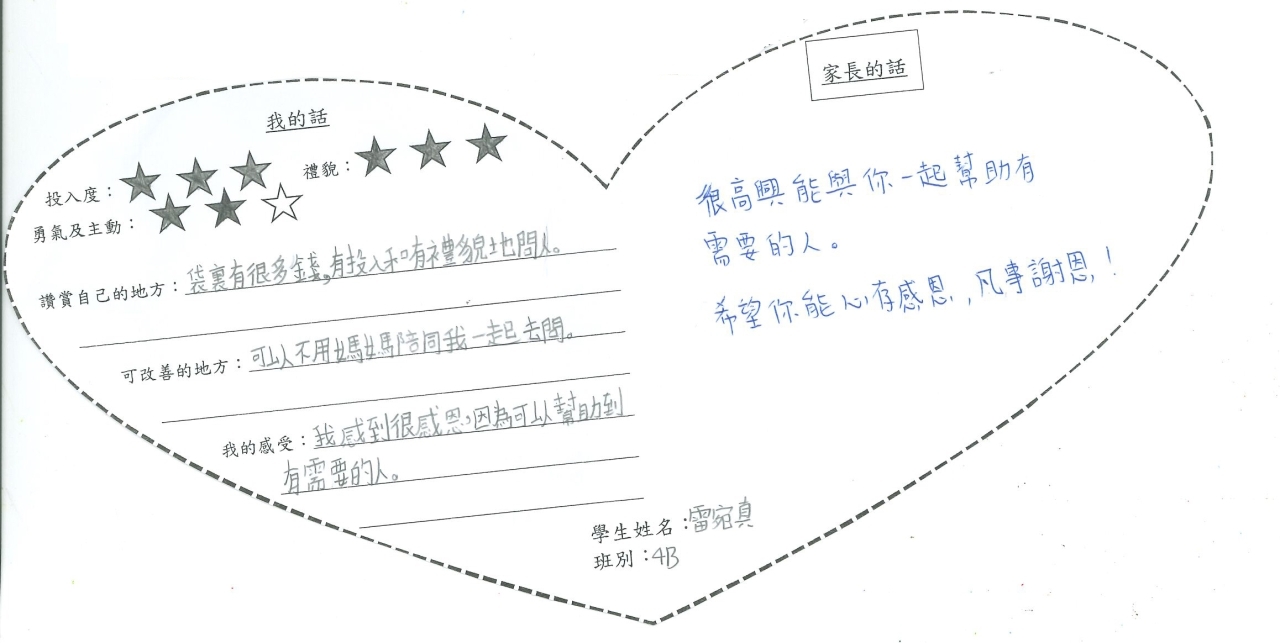 我的話
投入度：★ ★ ★ 禮貌：★ ★ ★
勇氣及主動：★ ★ ☆
讚賞自己的地方：袋裏有很多錢，有投入和有禮貌地問人。
可改善的地方：可以不用媽媽陪同我一起去問。
我的感受：我感到很感恩，因為可以幫助到
有需要的人。
學生姓名：雷宛真
班別：4B
家長的話
很高興能與你一起幫助有
需要的人。
希望你能心存感恩，凡事謝恩！